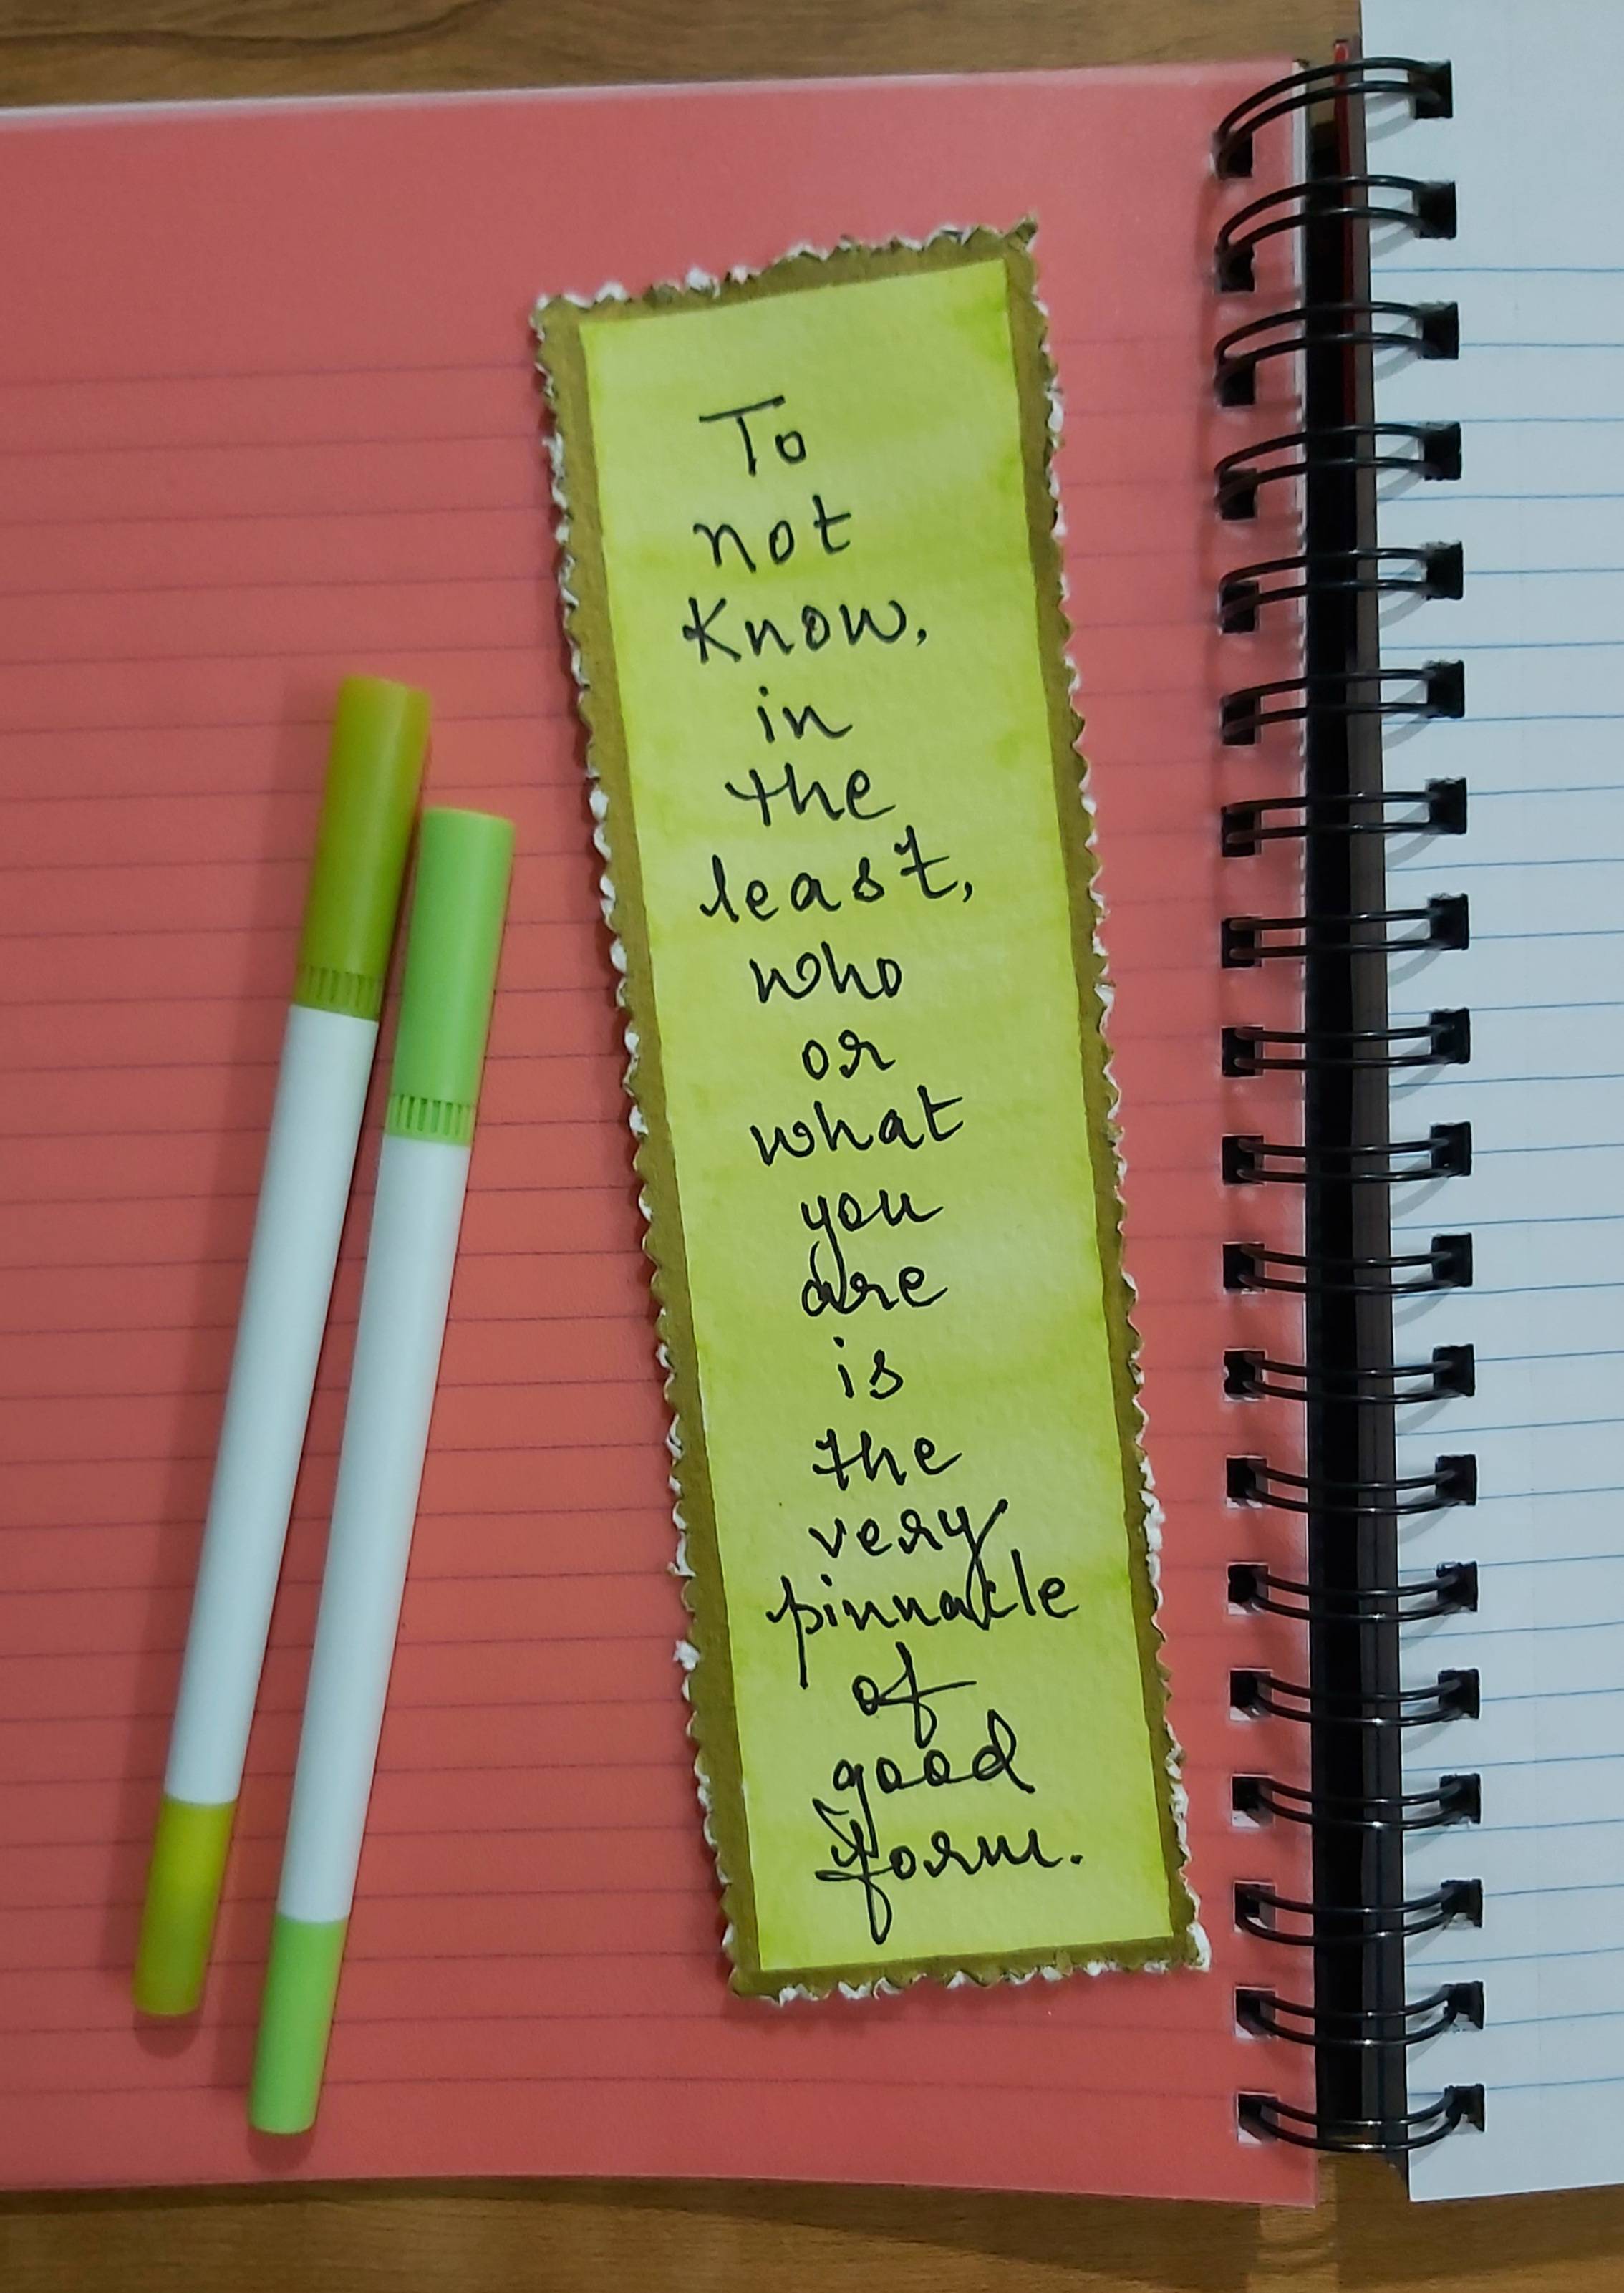 To
not
Know,
in
the
least,
who
or
what
you
are
is
the
very
pinnacle
of
good
form.